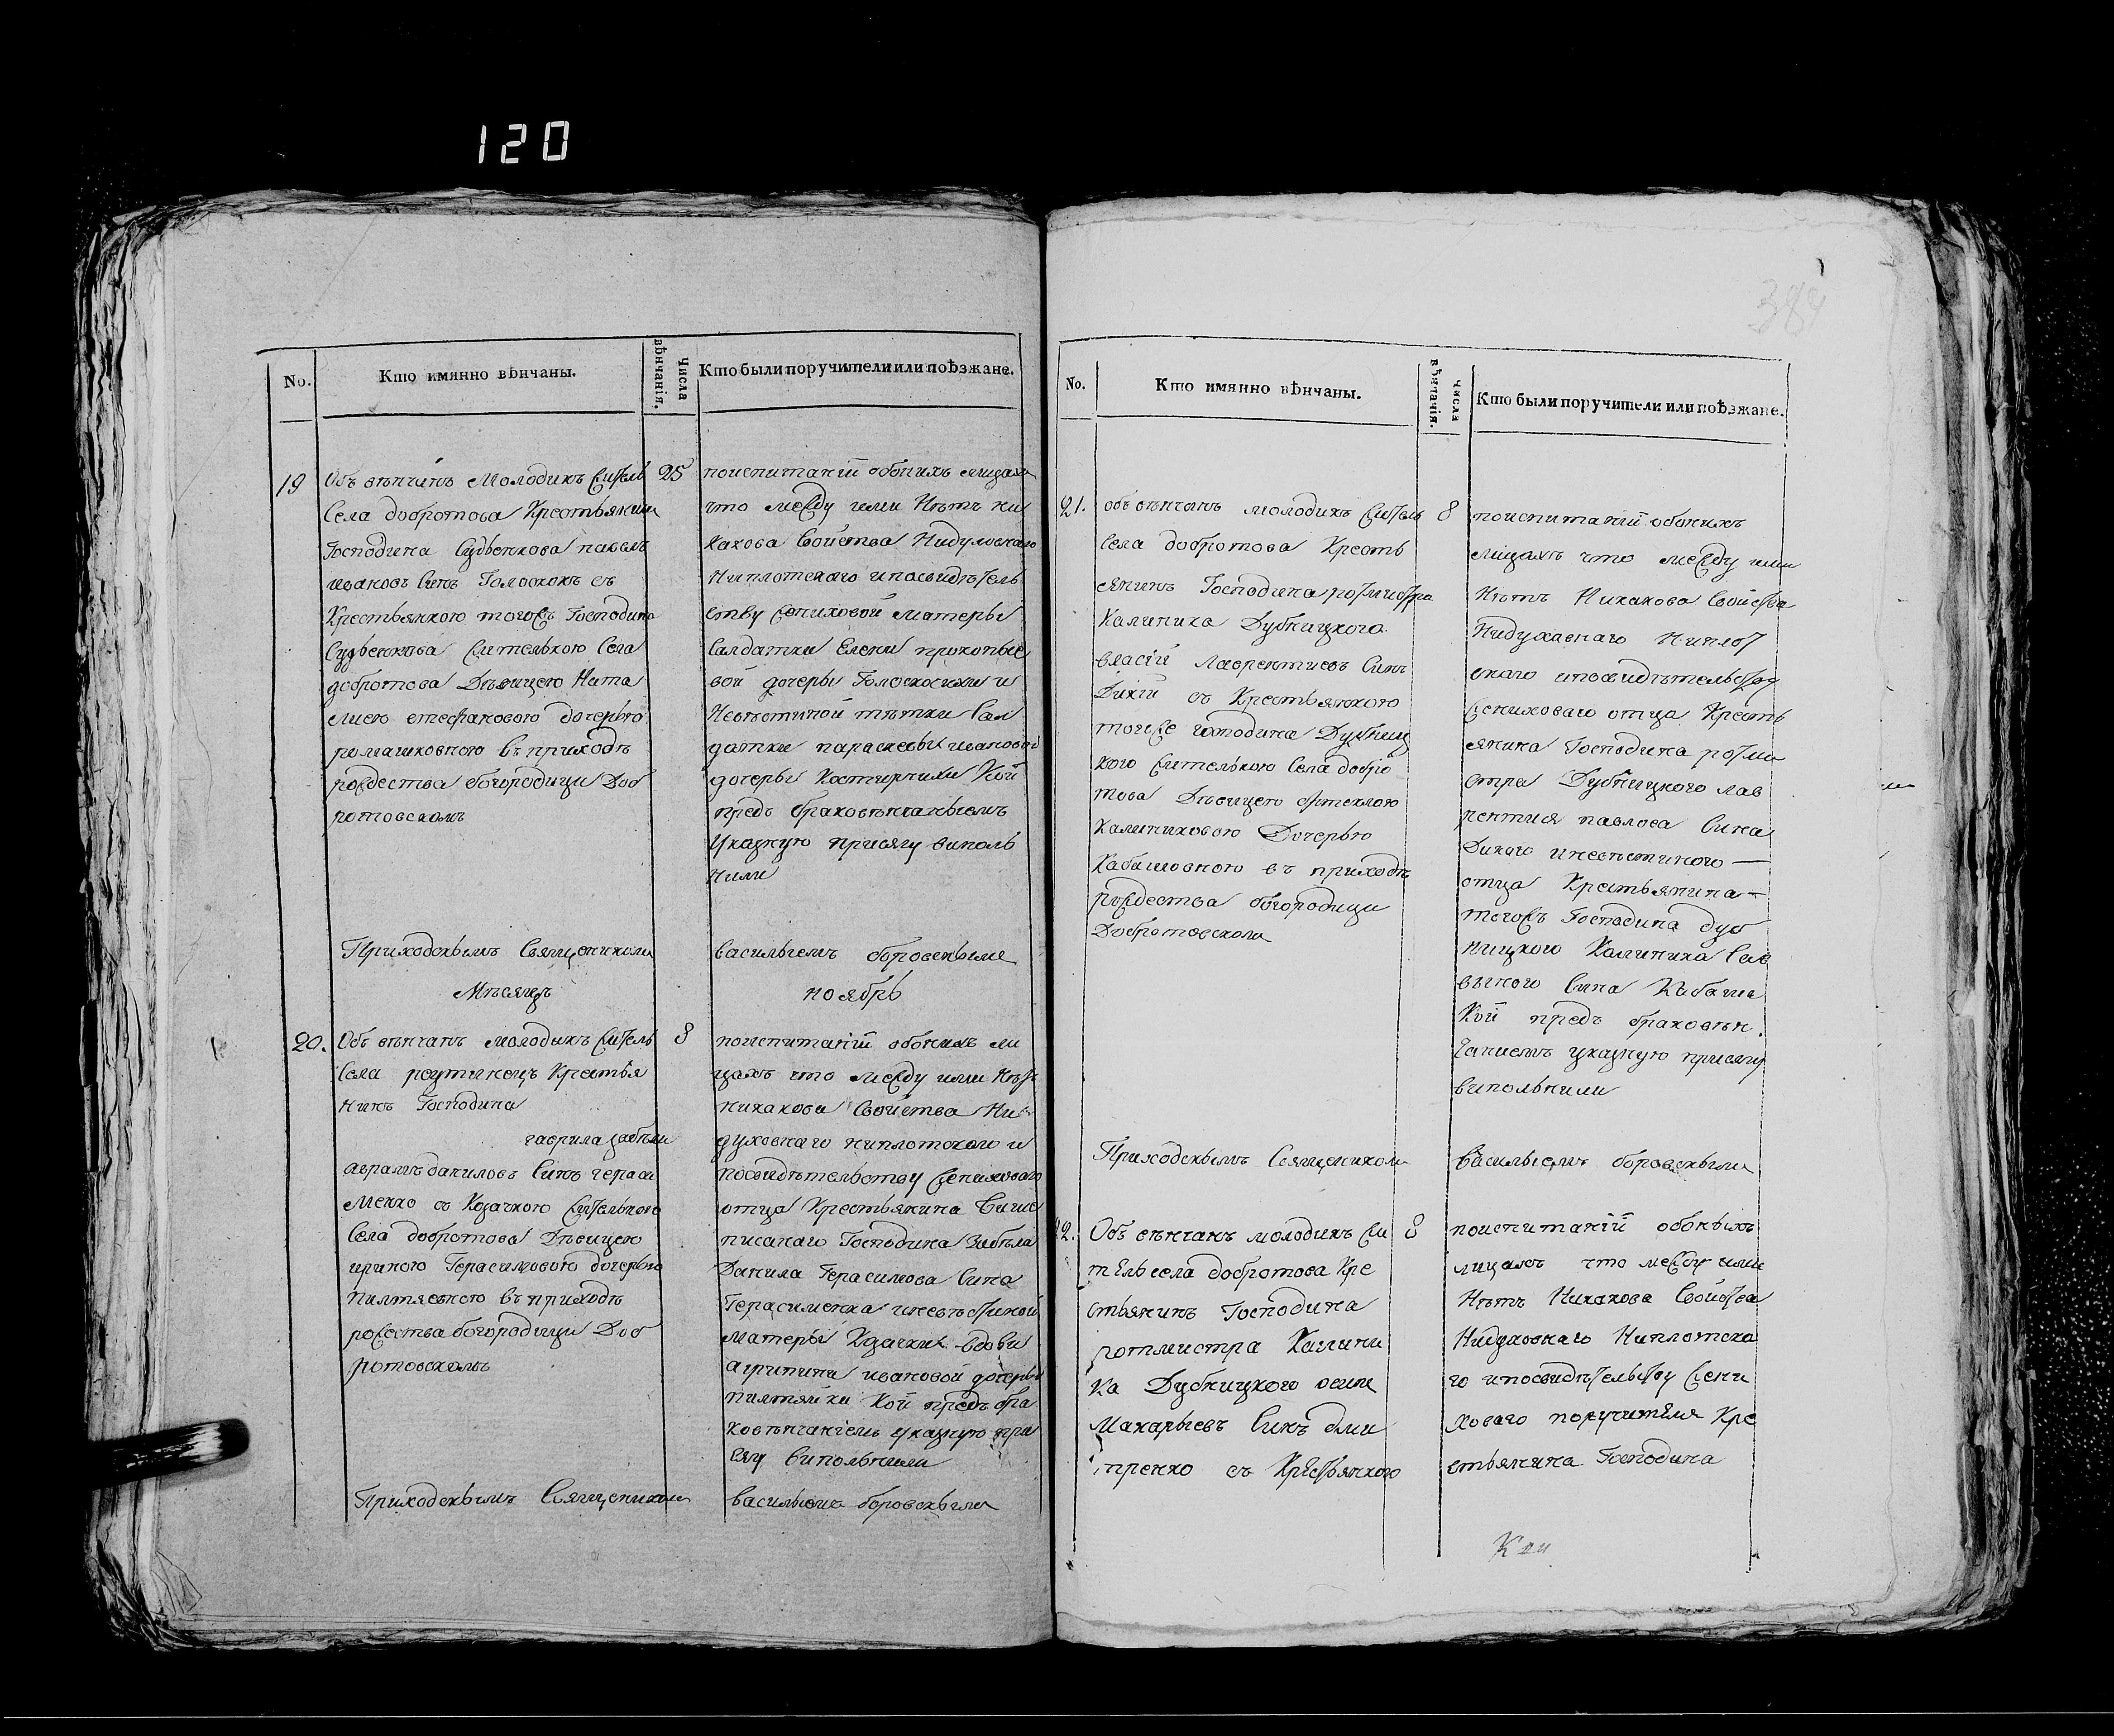 120
384
No.
Кто имянно вѣнчаны.
Числа вѣнчанія.
Кто были поручители или поѣзжане.
19
Объ вѣнчанъ молодикъ житель
села добротова Крестьянин
Господина Судьенкова павелъ
ивановъ синъ Голоскокъ съ
Крестьянкою тогожъ Господина
Судьенкова жителькою села
добротова Дѣвицею Ната
лиею стефановою дочерью
ромашковною въ приходѣ
рождества богородици Доб
ротовскомъ
25
поиспитаніи обоихъ лицахъ
что между ими Нѣтъ ни
какова свойства Нидуховнаго
Ниплотскаго ипосвидѣтель
ству жениховой матеры
салдатки Елени прокопые
вой дочеры Голоскосихи и
Невѣстиной тѣтки сал
датки параскевы ивановой
дочеры Костирчихи Кои
предъ браковѣнчаныемъ
Указную присягу виполь
нили
Приходскымъ Священиком
васильемъ боровскыме
Мѣсяцъ
ноябрь
20.
Объ вѣнчанъ молодыкъ житель
села реутинецъ Крестья
нинъ Господина
гаврила забѣли
аврамъ даниловъ синъ гераси
менко съ Козачкою жителькою
села добротова Дѣвицею
ириною Герасимовою дочерью
пилтяевною въ приходѣ
рожества богородици Доб
ротовскомъ
8
поиспитаніи обоихъ ли
цахъ что между ими Нѣтъ
никакова свойства Ни
духовнаго ниплотского и
посвидѣтельству жениховаго
отца Крестьянина више
писанаго Господина Забѣла
Данила Герасимова сина
Герасименка иневѣстиной
матеры Козачки вдови
агрипини ивановой дочеры
пилтяйки Кои предъ бра
ковѣнчаніемъ указную при
сягу виполнили
Приходскымъ Священиком
васильемъ боровскыми
21.
объ вѣнчанъ молодикъ житель
села добротова Кресть
янинъ Господина ротмистра
Калиника Дубницкого
власій лаврентиевъ синъ
Дикій съ Крестьянкою
тогоже господина Дубниц
кого жителькою села добро
това Дѣвицею Фтеклою
Калиниковою Дочерью
Кабашовною въ приходѣ
рождества богородици
Добротовском
8
поиспитаніи обоихъ
лицахъ что между ими
Нѣтъ Никакова свойства
Нидуховнаго Ниплот
скаго ипосвидѣтельству
жениховаго отца Кресть
янина Господина ротми
стра Дубницкого лав
рентия павлова сина
Дикаго иневѣстиного —
отца Крестьянина —
тогожъ Господина дуб
ницкого Калиника сав
виного сина Кабаша
Кои предъ браковѣн
чаниемъ указную присягу
виполнили
Приходскымъ Священиком
васильемъ боровскыми
22.
Объ вѣнчанъ молодикъ жи
тель села добротова Кре
стьянинъ Господина
ротмистра Калини
ка Дубницкого осип
Макарьевъ синъ дми
тренко съ Крестьянкою
8
поиспитаніи обоихъ
лицахъ что между ими
Нѣтъ Никакова свойства
Нидуховнаго Ниплотска
го ипосвидѣтельству жени
ховаго поручителя Кре
стьянина Господина